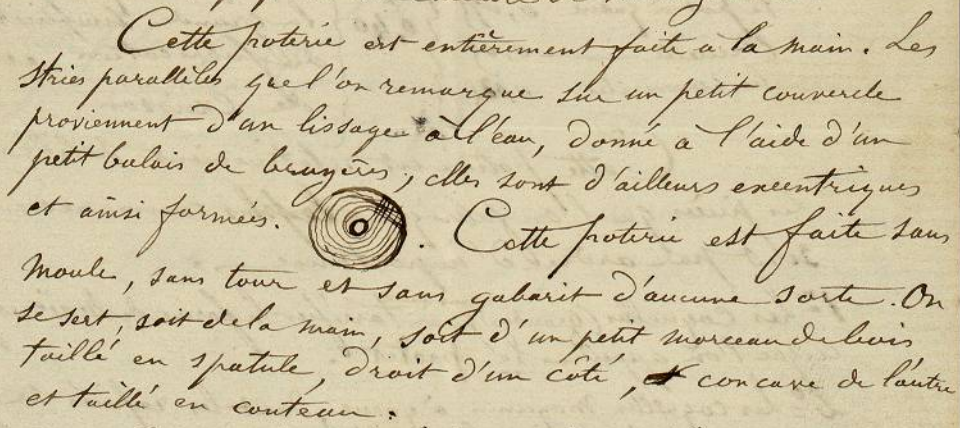 Cette poterie est entièrement faite a la main. Les
stries parallèles que l'on remarque sur un petit couvercle
proviennent d'un lissage à l'eau, donné a l'aide d'un
petit balais de bruyères; elles sont d'ailleurs excentriques
et ainsi formées. . Cette poterie est faite sans
moule, sans tour et sans gabarit d'aucune sorte. On
se sert, soit de la main, soit d'un petit morceau de bois
taillé en spatule, droit d'un côté, concave de l'autre
et taillé en couteau.